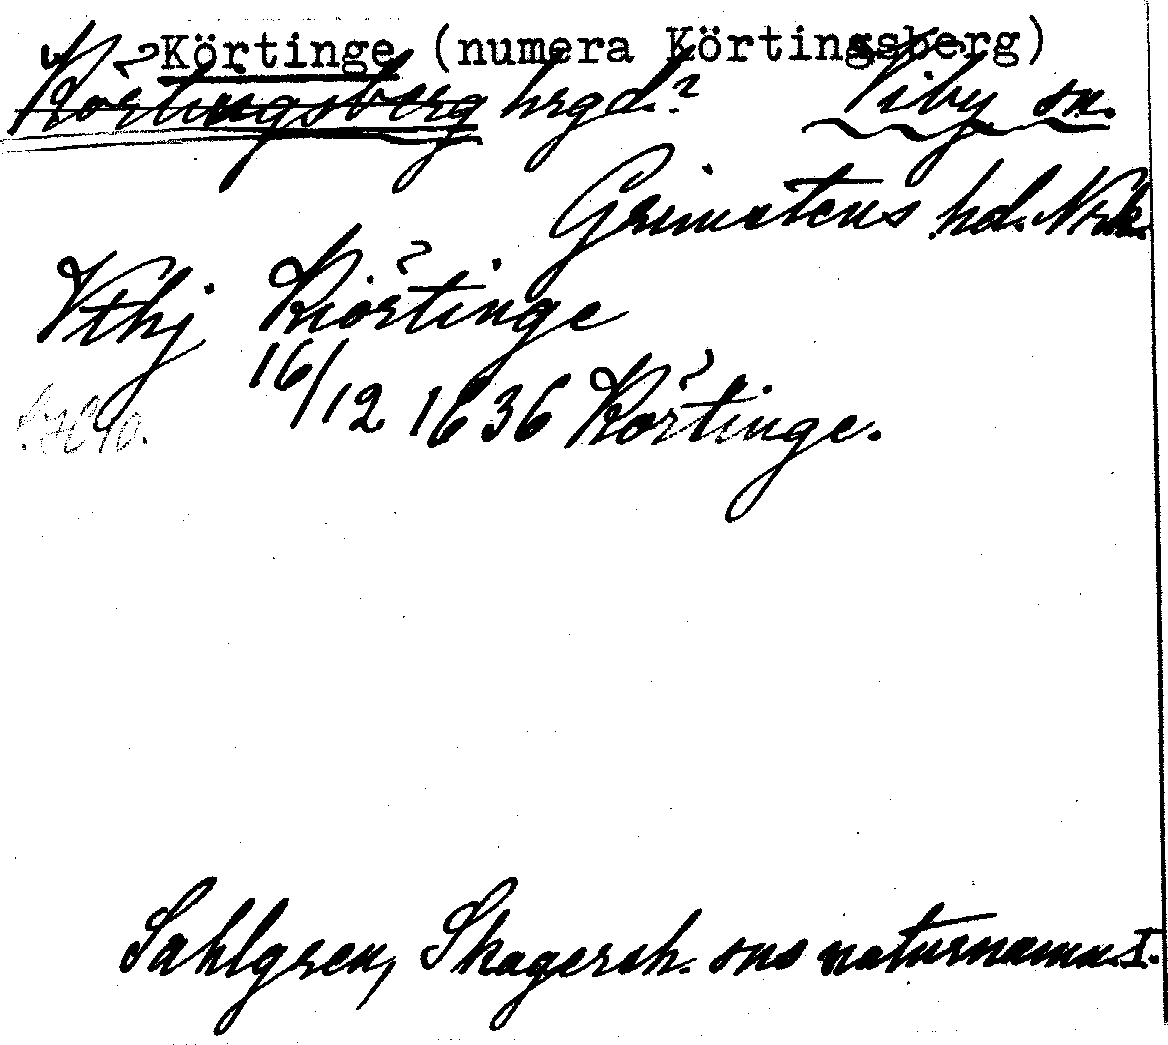 Körtinge (numera Körtingsberg)
Körtingsberg hrgd? Viby sn.
Grimstens hd. Nrk.
Vthj Kiörtinge
16/12 1636 Körtinge.
Sahlgren, Skagersh. sns naturnamn. I.